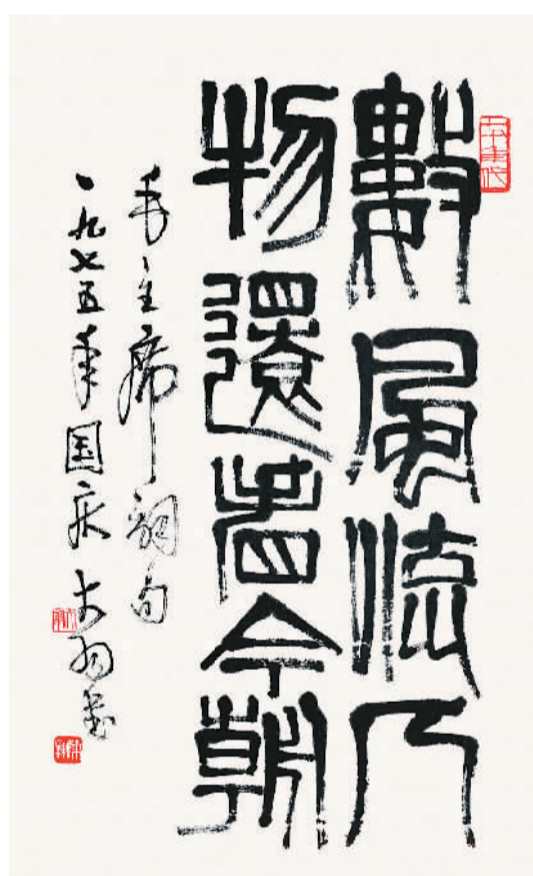 數風流人
物還看今朝
毛主席詞句
一九七五年国庆大羽書